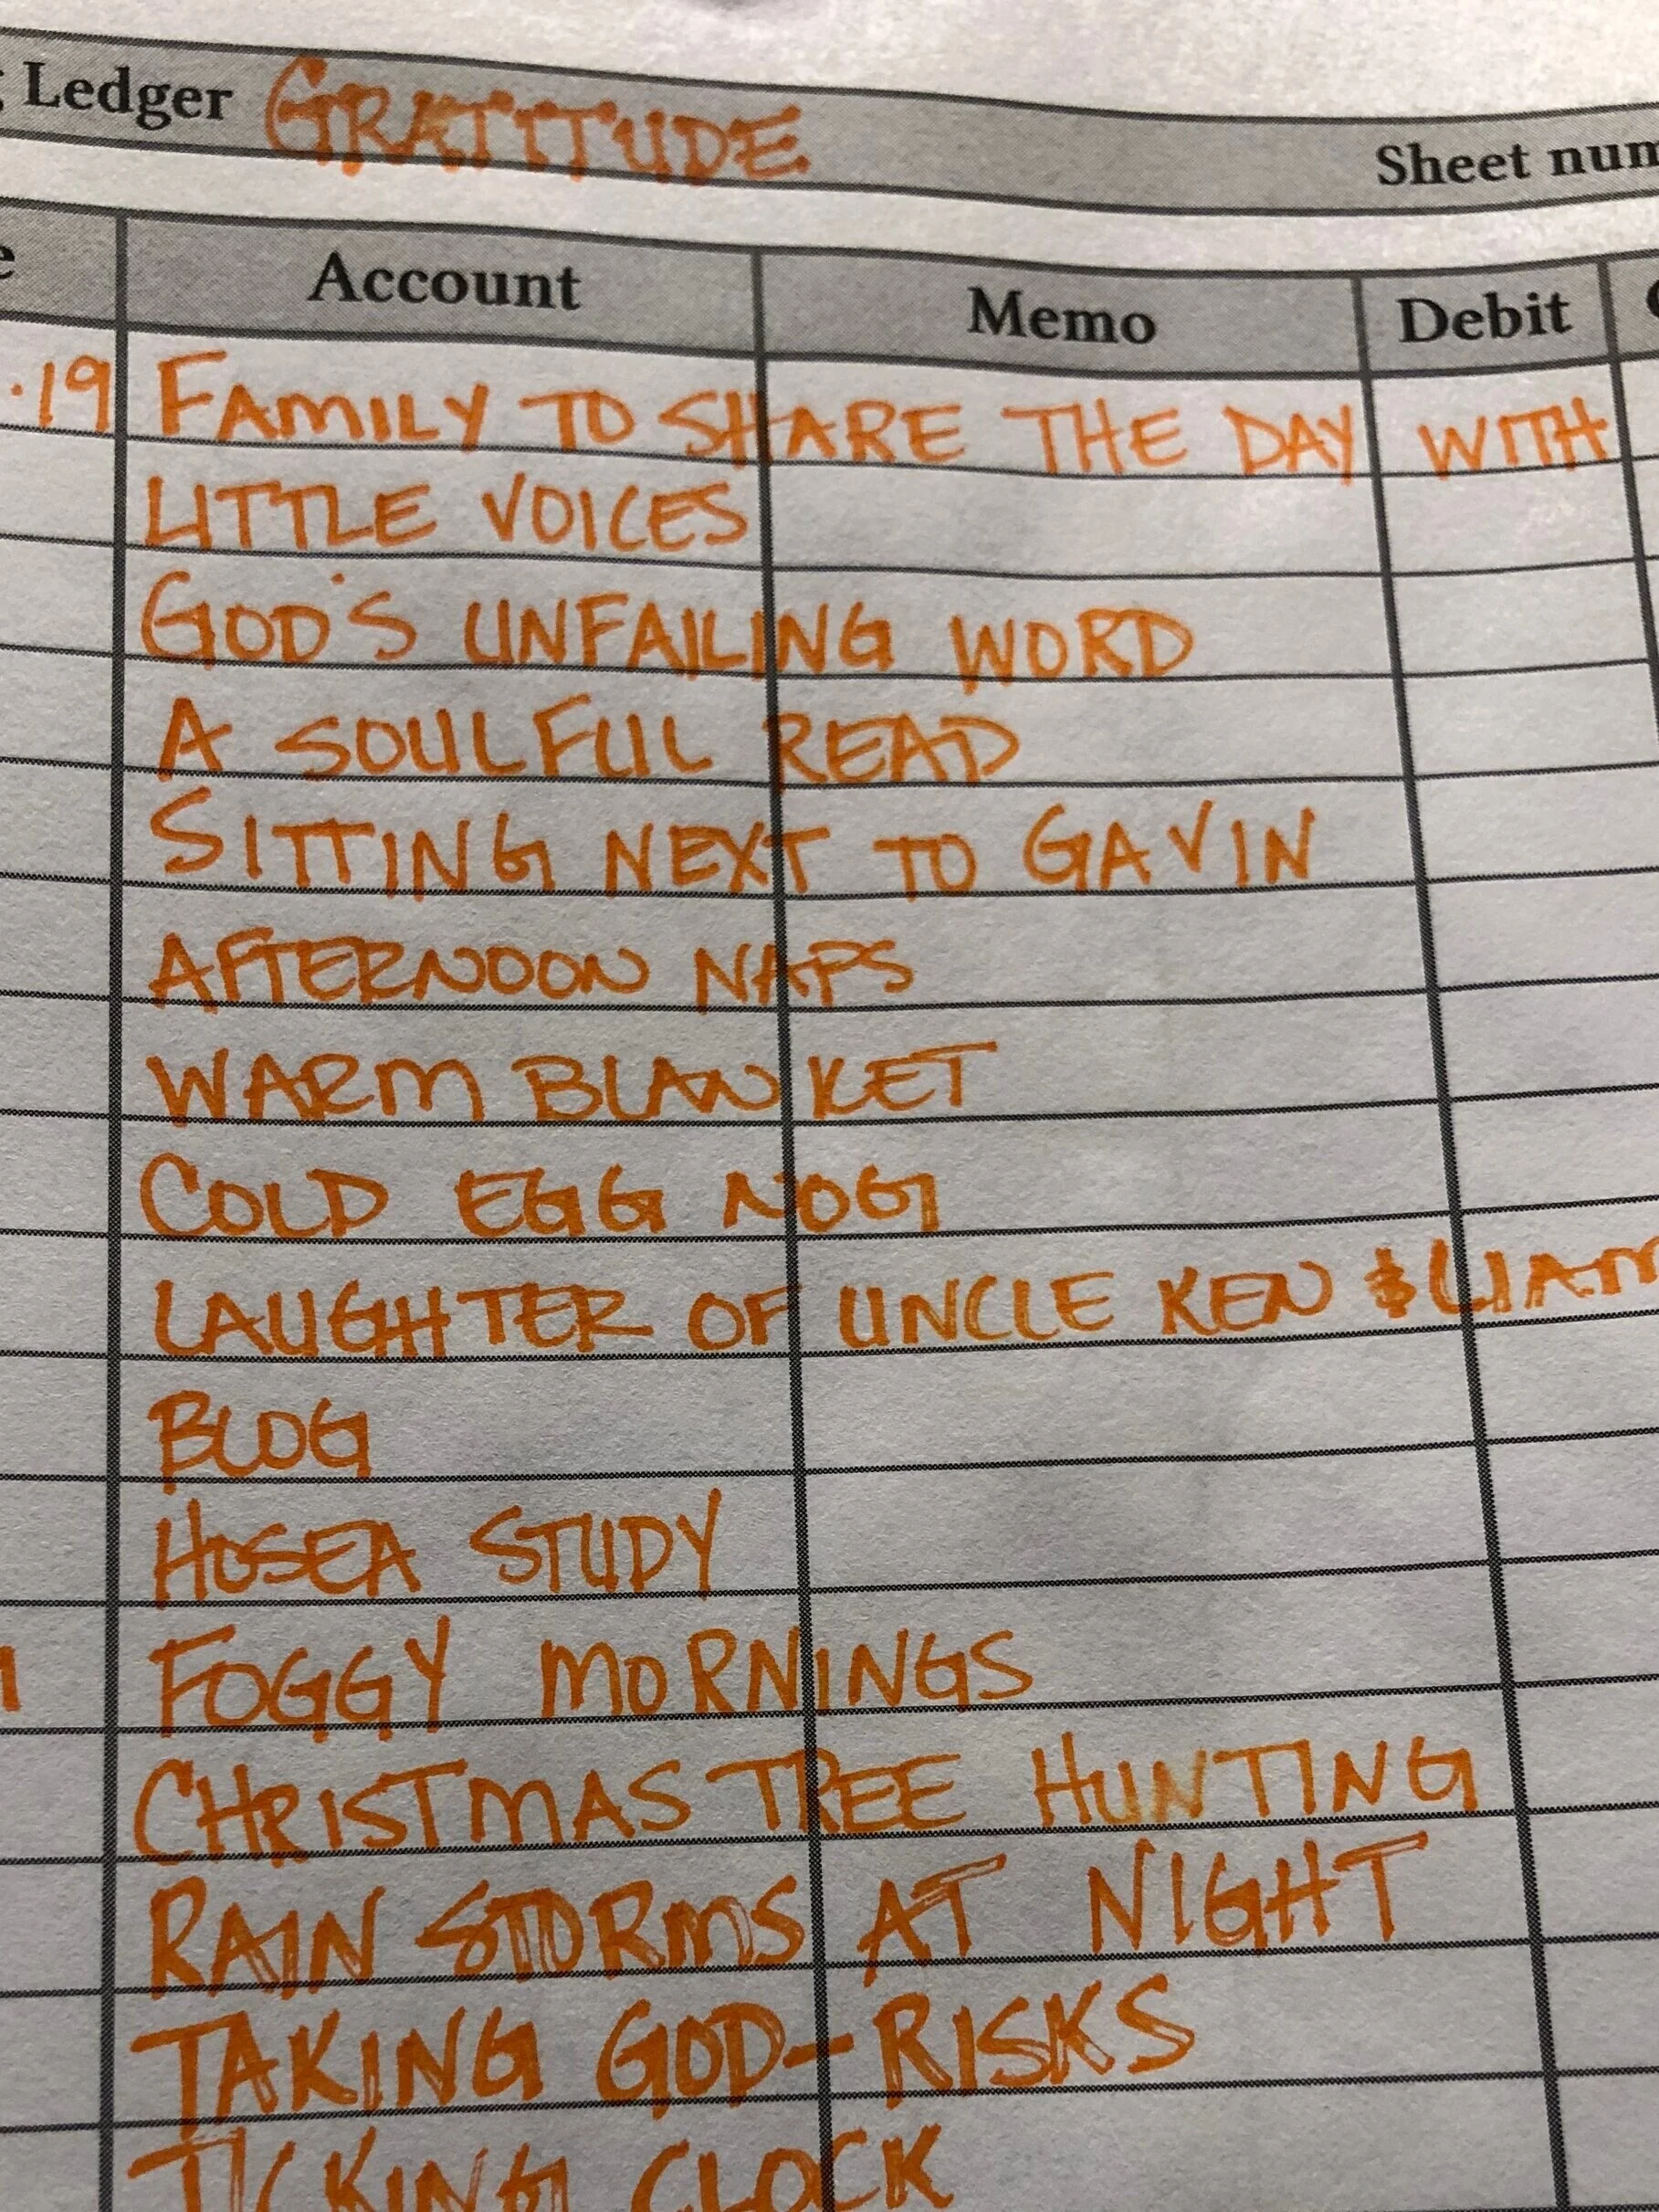 Ledger GRATITUDE
Sheet num
e Account Memo Debit
.19 FAMILY TO SHARE THE DAY WITH
LITTLE VOICES
GOD'S UNFAILING WORD
A SOULFUL READ
SITTING NEXT TO GAVIN
AFTERNOON NAPS
WARM BLANKET
COLD EGG NOG
LAUGHTER OF UNCLE KEN & LIAM
BLOG
HOSEA STUDY
FOGGY MORNINGS
CHRISTMAS TREE HUNTING
RAIN STORMS AT NIGHT
TAKING GOD-RISKS
TICKING CLOCK